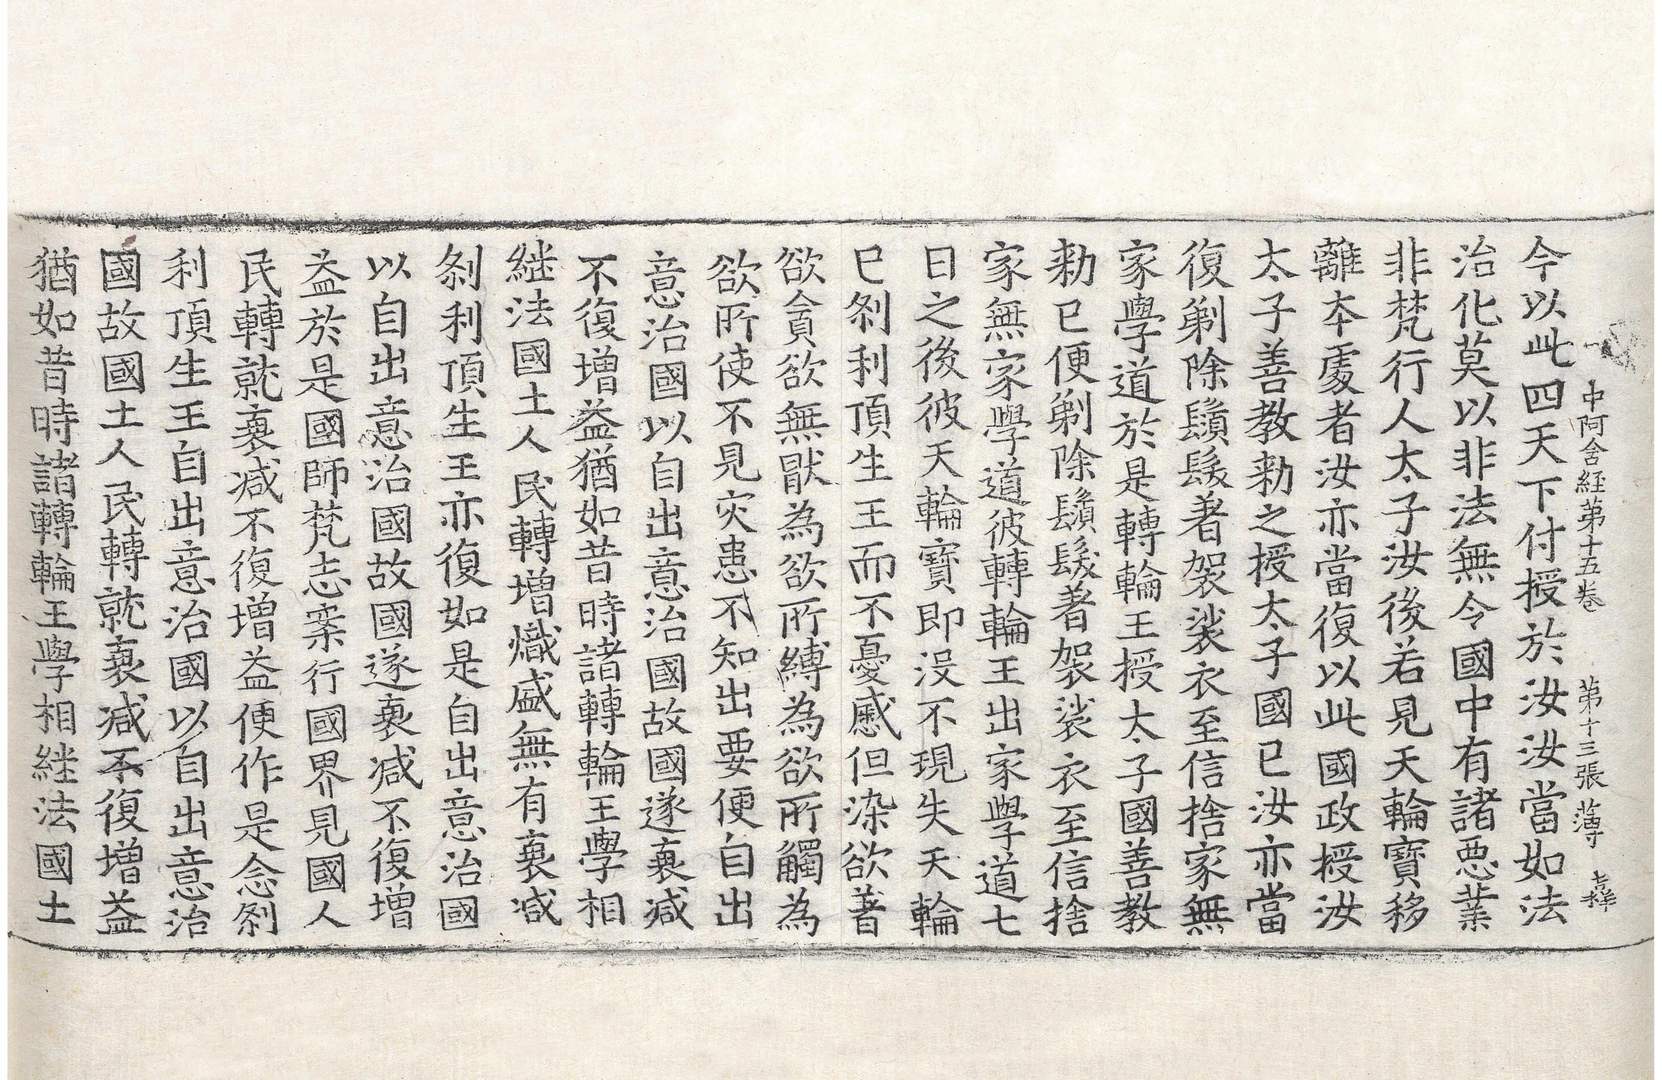 中阿含経第十五巻 第十三張 薄
今以此四天下付授於汝汝當如法
治化莫以非法無令國中有諸悪業
非梵行人太子汝後若見天輪寶移
離本處者汝亦當復以此國政授汝
太子善教勑之授太子國已汝亦當
復剃除鬚髮著袈裟衣至信捨家無
家學道於是轉輪王授太子國善教
勑已便剃除鬚髮著袈裟衣至信捨
家無家學道彼轉輪王出家學道七
日之後彼天輪寶即没不現失天輪
已刹利頂生王而不憂慼但染欲著
欲貪欲無猒為欲所縛為欲所觸為
欲所使不見灾患不知出要便自出
意治國以自出意治國故國遂衰减
不復增益猶如昔時諸轉輪王學相
継法國土人民轉增熾盛無有衰减
刹利頂生王亦復如是自出意治國
以自出意治國故國遂衰减不復增
益於是國師梵志案行國界見國人
民轉就衰减不復增益便作是念刹
利頂生王自出意治國以自出意治
國故國土人民轉就衰减不復增益
猶如昔時諸轉輪王學相継法國土